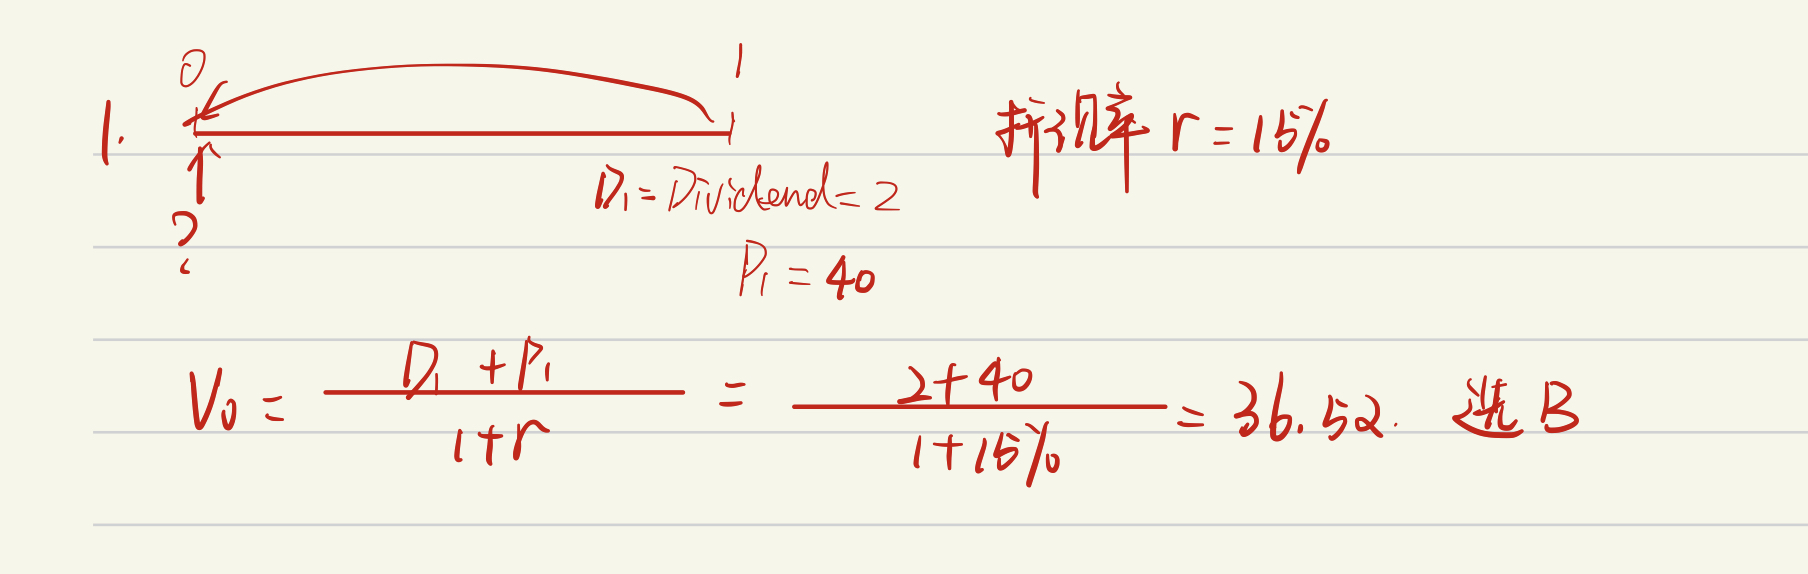 1.
0 1
? D₁ = Dividend = 2 折现率 r = 15%
P₁ = 40
V₀ = (D₁ + P₁)/(1 + r) = (2 + 40)/(1 + 15%) = 36.52. 选 B